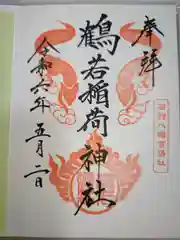 奉拝
鶴若稲荷神社
令和六年五月二日